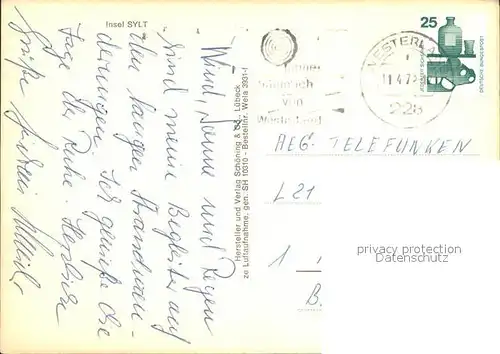 Insel SYLT
Wind, Sonne und Regen
sind meine Begleiter auf
den langen Strandwan-
derungen. Ich genieße die
Tage der Ruhe. Herzliche
Grüße
Hersteller und Verlag Schöning & Co., Lübeck
zu Luftaufnahme, gen. SH 10310 - Bestellnr. Wela 3931-f
25
DEUTSCHE BUNDESPOST
WESTERLA
11.4.7
228
von
AEG. TELEFUNKEN
L21
1
B.
privacy protection
Datenschutz